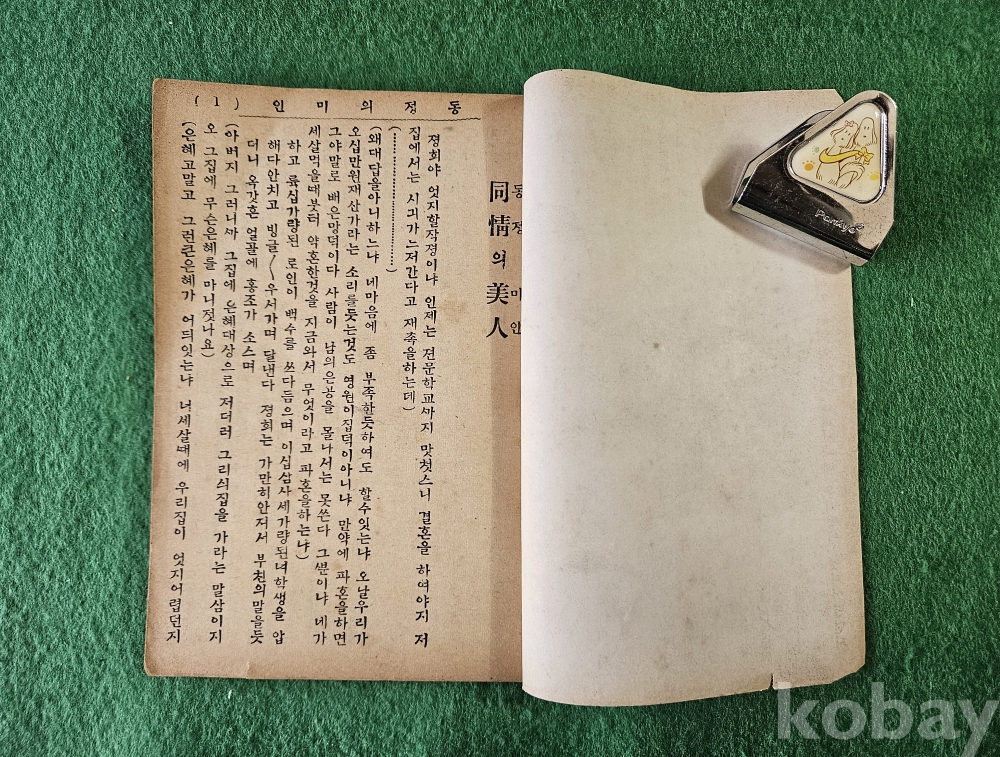 동정의미인 (1)
同情의美人
동정 미인
졍희야 엇지할작졍이냐 인제는 젼문학교까지 맛첫스니 결혼을 하여야지 저
집에서는 시긔가느저간다고 재촉을하는데)
(……………………)
(왜대답을아니하느냐 네마음에 좀 부족한듯하여도 할수잇는냐 오날우리가
오십만원재산가라는 소리를듯는것도 영원이집덕이아니냐 만약에 파혼을하면
그야말로 배은망덕이다 사람이 남의은공을 몰나서는 못쓴다 그뿐이냐 네가
세살먹을때붓터 약혼한것을 지금와서 무엇이라고 파혼을하는냐)
하고 륙십가량된 로인이 백수를 쓰다듬으며 이십삼사세가량된녀학생을 압
해다안치고 빙글〱우서가며 달낸다 졍희는 가만히안저서 부친의말을듯
더니 옥갓흔 얼골에 홍조가 소스며
(아버지 그러니까 그집에 은혜대상으로 저더러 그리싀집을 가라는 말삼이지
오 그집에 무슨은혜를 마니젓나요)
(은혜고말고 그런큰은혜가 어듸잇는냐 너세살때에 우리집이 엇지어렵던지
Pankyo
kobay